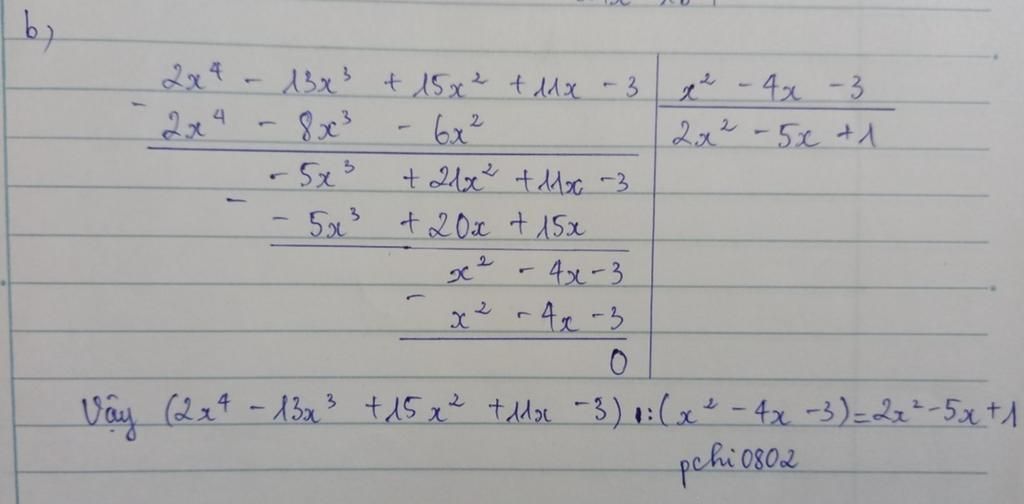 b)
2x⁴ - 13x³ + 15x² + 11x - 3 | x² - 4x - 3
- 2x⁴ - 8x³ - 6x² | 2x² - 5x + 1
- 5x³ + 21x² + 11x - 3
- - 5x³ + 20x + 15x
x² - 4x - 3
- x² - 4x - 3
0
Vậy (2x⁴ - 13x³ + 15x² + 11x - 3) : (x² - 4x - 3) = 2x² - 5x + 1
pchi0802